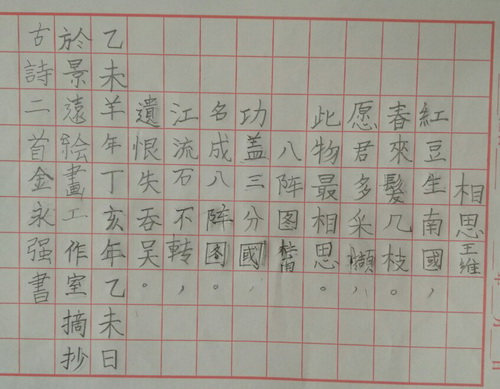 相思王维
紅豆生南國，
春來髮几枝。
愿君多采擷，
此物最相思。
八阵图杜甫
功盖三分國
名成八阵图。
江流石不轉，
遺恨失吞吴。
乙未羊年丁亥年乙未日
於景遠繪畫工作室摘抄
古詩二首金永强書